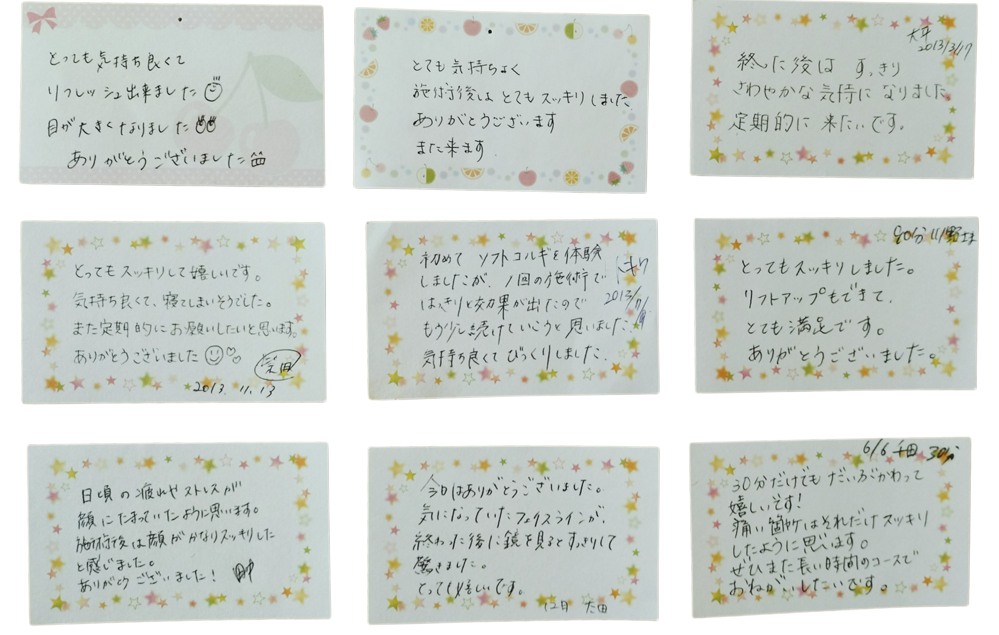 とっても気持ち良くて
リフレッシュ出来ました
目が大きくなりました
ありがとうございました
とても気持ちよく
施術後はとてもスッキリしました
ありがとうございます
また来ます
2013/3/17
終った後は すっきり
さわやかな気持になりました。
定期的に来たいです。
とってもスッキリして嬉しいです。
気持ち良くて、寝てしまいそうでした。
また定期的にお願いしたいと思います。
ありがとうございました
2013. 11. 13
初めて ソフトコルギを体験
しましたが、1回の施術で
はっきりと効果が出たので
もう少し続けていこうと思いました。
気持ち良くてびっくりしました。
2013/
80分
とってもスッキリしました。
リフトアップもできて、
とても満足です。
ありがとうございました。
日頃の疲れやストレスが
顔にたまっていたように思います。
施術後は顔がかなりスッキリした
と感じました。
ありがとうございました!
今日はありがとうございました。
気になっていたフェイスラインが、
終わった後に鏡を見るとすっきりして
驚きました。
とっても嬉しいです。
12月 太田
6/6 千田 30分
30分だけでもだいぶかわって
嬉しいです!
痛い箇所はそれだけスッキリ
したように思います。
ぜひまた長い時間のコースで
おねがいしたいです。